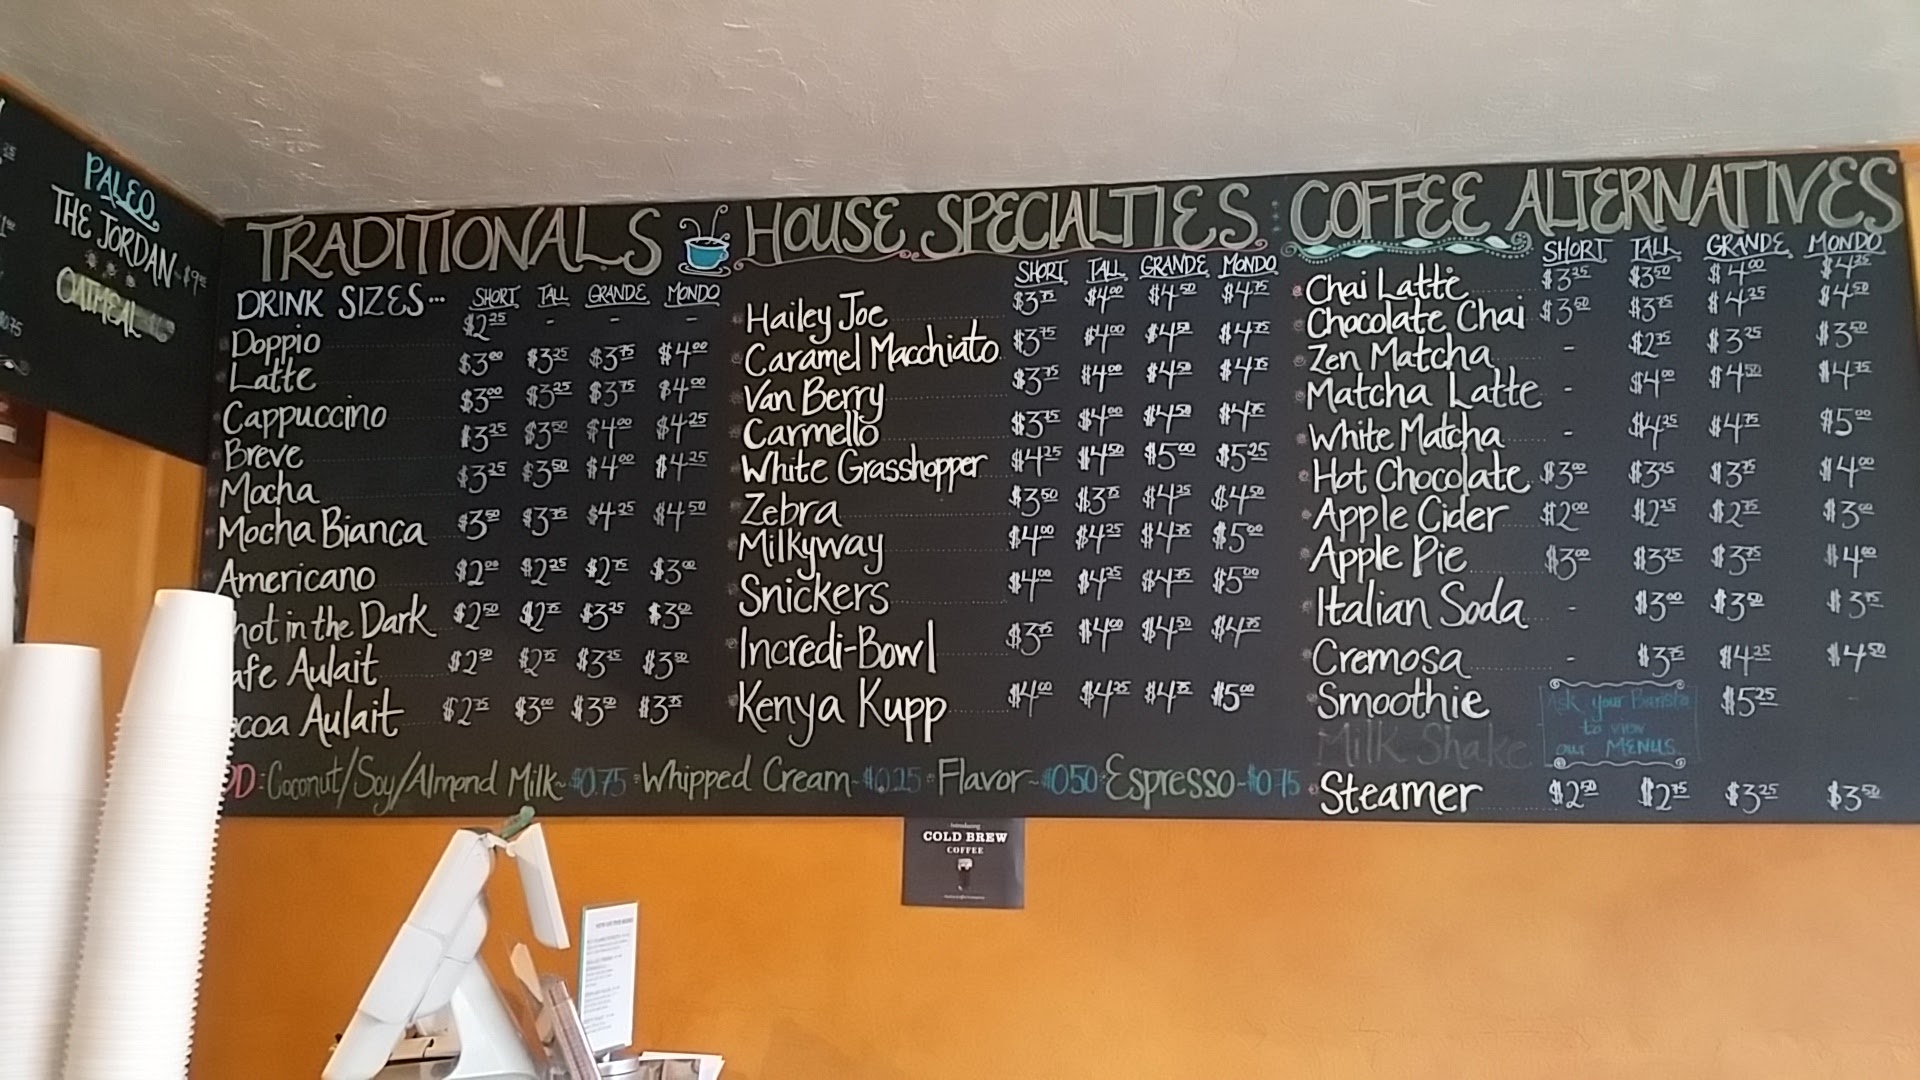 PALEO
THE JORDAN
OATMEAL
TRADITIONALS
DRINK SIZES... SHORT TALL GRANDE MONDO
Doppio $2.25 - - -
Latte $3.00 $3.25 $3.75 $4.00
Cappuccino $3.00 $3.25 $3.75 $4.00
Breve $3.25 $3.50 $4.00 $4.25
Mocha $3.25 $3.50 $4.00 $4.25
Mocha Bianca $3.50 $3.75 $4.25 $4.50
Americano $2.00 $2.25 $2.75 $3.00
hot in the Dark $2.50 $2.75 $3.25 $3.50
afe Aulait $2.50 $2.75 $3.25 $3.50
ocoa Aulait $2.75 $3.00 $3.50 $3.75
HOUSE SPECIALTIES
SHORT TALL GRANDE MONDO
Hailey Joe $3.75 $4.00 $4.50 $4.75
Caramel Macchiato $3.75 $4.00 $4.50 $4.75
Van Berry $3.75 $4.00 $4.50 $4.75
Carmello $3.75 $4.00 $4.50 $4.75
White Grasshopper $4.25 $4.50 $5.00 $5.25
Zebra $3.50 $3.75 $4.25 $4.50
Milkyway $4.00 $4.25 $4.75 $5.00
Snickers $4.00 $4.25 $4.75 $5.00
Incredi-Bowl $3.75 $4.00 $4.50 $4.75
Kenya Kupp $4.00 $4.25 $4.75 $5.00
COFFEE ALTERNATIVES
SHORT TALL GRANDE MONDO
Chai Latte $3.25 $3.50 $4.00 $4.25
Chocolate Chai $3.50 $3.75 $4.25 $4.50
Zen Matcha - $2.75 $3.25 $3.50
Matcha Latte - $4.00 $4.50 $4.75
White Matcha - $4.25 $4.75 $5.00
Hot Chocolate $3.00 $3.25 $3.75 $4.00
Apple Cider $2.00 $2.25 $2.75 $3.00
Apple Pie $3.00 $3.25 $3.75 $4.00
Italian Soda - $3.00 $3.50 $3.75
Cremosa - $3.75 $4.25 $4.50
Smoothie $5.25 -
Milk Shake
Ask your Barista
to view
our MENUS
Steamer $2.50 $2.75 $3.25 $3.50
DD: Coconut/Soy/Almond Milk~$0.75 Whipped Cream~$0.25 Flavor~$0.50 Espresso~$0.75
Introducing
COLD BREW
COFFEE